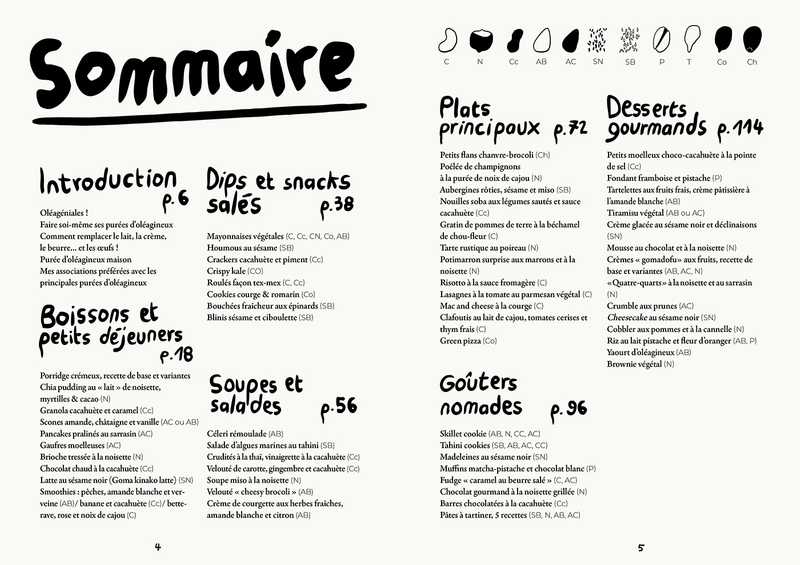 Sommaire
Introduction
p.6
Oléagéniales !
Faire soi-même ses purées d'oléagineux
Comment remplacer le lait, la crème,
le beurre... et les œufs !
Purée d'oléagineux maison
Mes associations préférées avec les
principales purées d'oléagineux
Boissons et
petits déjeuners
p.18
Porridge crémeux, recette de base et variantes
Chia pudding au « lait » de noisette,
myrtilles & cacao (N)
Granola cacahuète et caramel (Cc)
Scones amande, châtaigne et vanille (AC ou AB)
Pancakes pralinés au sarrasin (AC)
Gaufres moelleuses (AC)
Brioche tressée à la noisette (N)
Chocolat chaud à la cacahuète (Cc)
Latte au sésame noir (Goma kinako latte) (SN)
Smoothies : pêches, amande blanche et ver-
veine (AB)/ banane et cacahuète (Cc)/ bette-
rave, rose et noix de cajou (C)
Dips et snacks
salés p.38
Mayonnaises végétales (C, Cc, CN, Co, AB)
Houmous au sésame (SB)
Crackers cacahuète et piment (Cc)
Crispy kale (CO)
Roulés façon tex-mex (C, Cc)
Cookies courge & romarin (Co)
Bouchées fraîcheur aux épinards (SB)
Blinis sésame et ciboulette (SB)
Soupes et
salades p.56
Céleri rémoulade (AB)
Salade d'algues marines au tahini (SB)
Crudités à la thaï, vinaigrette à la cacahuète (Cc)
Velouté de carotte, gingembre et cacahuète (Cc)
Soupe miso à la noisette (N)
Velouté « cheesy brocoli » (AB)
Crème de courgette aux herbes fraîches,
amande blanche et citron (AB)
4
C N Cc AB AC SN SB P T Co Ch
Plats
principaux p.72
Petits flans chanvre-brocoli (Ch)
Poêlée de champignons
à la purée de noix de cajou (N)
Aubergines rôties, sésame et miso (SB)
Nouilles soba aux légumes sautés et sauce
cacahuète (Cc)
Gratin de pommes de terre à la béchamel
de chou-fleur (C)
Tarte rustique au poireau (N)
Potimarron surprise aux marrons et à la
noisette (N)
Risotto à la sauce fromagère (C)
Lasagnes à la tomate au parmesan végétal (C)
Mac and cheese à la courge (C)
Clafoutis au lait de cajou, tomates cerises et
thym frais (C)
Green pizza (Co)
Goûters
nomades p.96
Skillet cookie (AB, N, CC, AC)
Tahini cookies (SB, AB, AC, CC)
Madeleines au sésame noir (SN)
Muffins matcha-pistache et chocolat blanc (P)
Fudge « caramel au beurre salé » (C, AC)
Chocolat gourmand à la noisette grillée (N)
Barres chocolatées à la cacahuète (Cc)
Pâtes à tartiner, 5 recettes (SB, N, AB, AC)
Desserts
gourmands p.114
Petits moelleux choco-cacahuète à la pointe
de sel (Cc)
Fondant framboise et pistache (P)
Tartelettes aux fruits frais, crème pâtissière à
l'amande blanche (AB)
Tiramisu végétal (AB ou AC)
Crème glacée au sésame noir et déclinaisons
(SN)
Mousse au chocolat et à la noisette (N)
Crèmes « gomadofu» aux fruits, recette de
base et variantes (AB, AC, N)
«Quatre-quarts» à la noisette et au sarrasin
(N)
Crumble aux prunes (AC)
Cheesecake au sésame noir (SN)
Cobbler aux pommes et à la cannelle (N)
Riz au lait pistache et fleur d'oranger (AB, P)
Yaourt d'oléagineux (AB)
Brownie végétal (N)
5